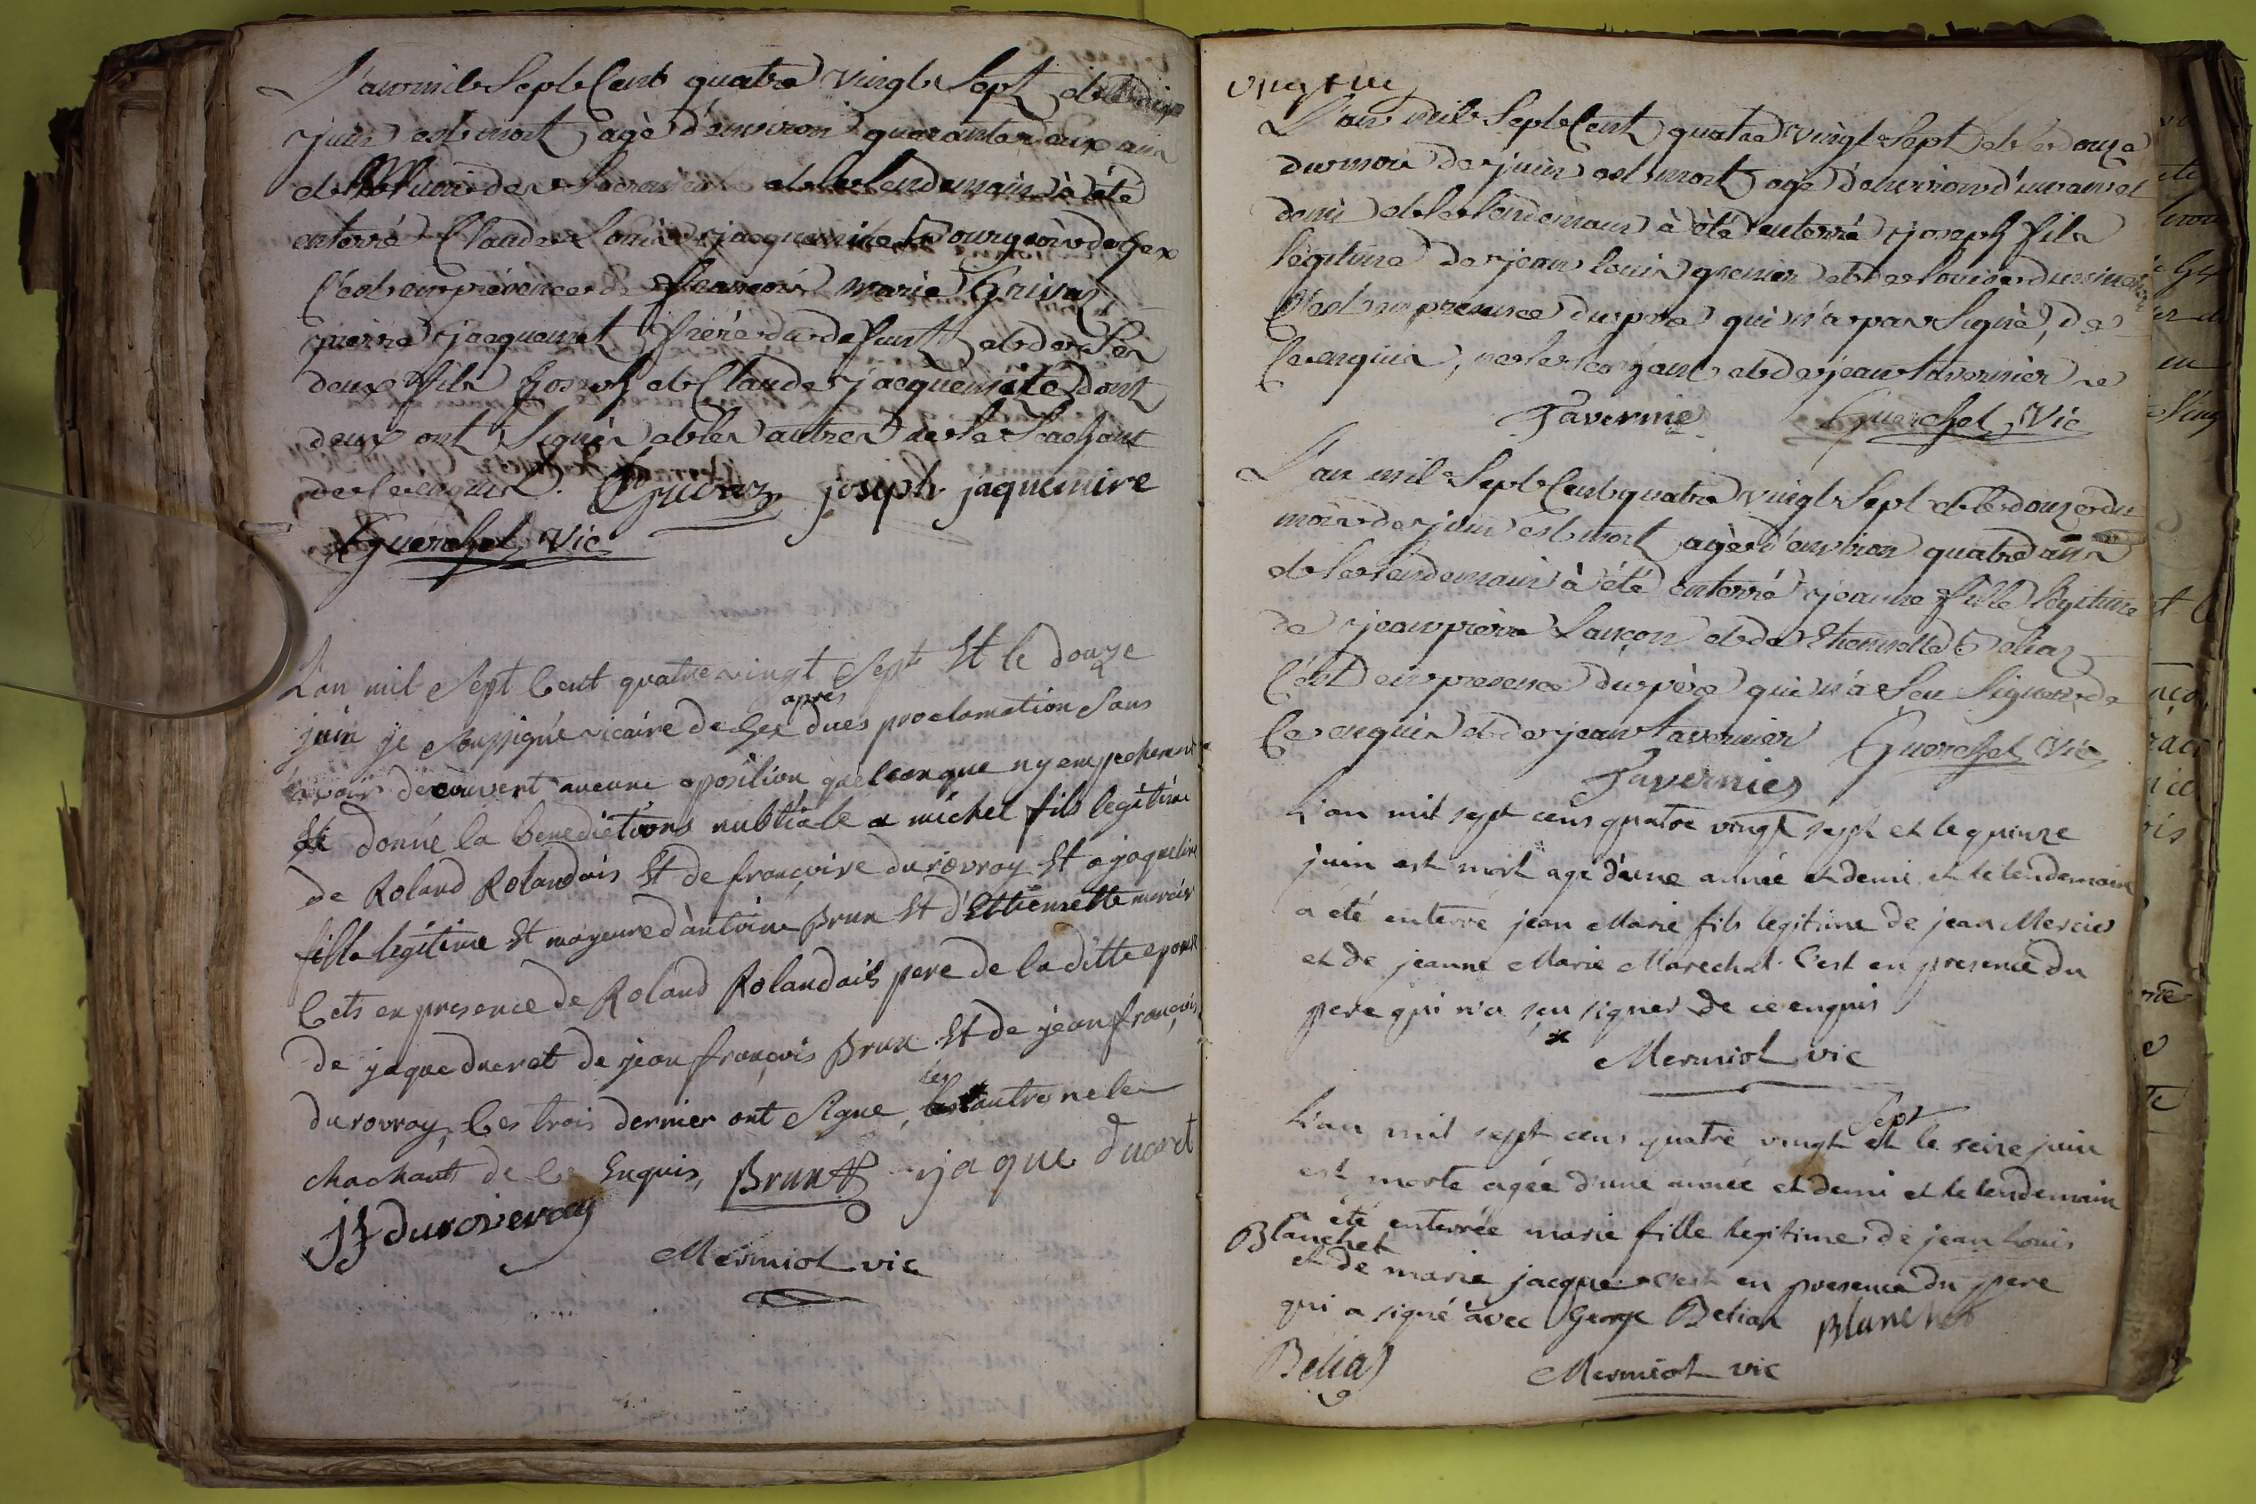 L'an mil Sept Cent quatre Vingt Sept et le
juin est mort agé d'environ quarante deux ans
et Muni des Sacremens et le lendemain à été
enterré Claude Louis jacquemire Bourgeois de Gex
C'est en présence de françois marie Grivaz
pierre jacquemet frère du defunt et de Ses
deux fils Joseph et Claude jacquemire dont
deux ont Signés et les autres ne le Scachant
de ce enquis. Grivaz joseph jaquemire
Guerchet Vic
L'an mil Sept Cent quatre vingt Sept Et le douze
juin je Soussigné vicaire de Gex après dues proclamation Sans
avoir decouvert aucune oposition quelconque ny empechement
ai donné la benediction nubtiale a michel fils legitime
de Roland Rolandais Et de françoise durovray Et a jaqueline
fille legitime Et mayeure d'antoine Brun Et d'Ettiennette mercier
C'ets en presence de Roland Rolandais pere de la ditte epouse
de jaque ducret de jean françois Brun Et de jean françois
durovray, Ces trois dernier ont Signe, les autres ne le
chachant de Ce Enquis, Brun jaque ducret
jf duroveray
Mermiol vic
vingt un
L'an mil Sept Cent quatre vingt Sept et le douze
du mois de juin est mort agé d'environ d'un an et
demi et le lendemain à été enterré joseph fils
légitime de jean louis grenier et de louise
C'est en presence du pere qui n'a pas Signé, de
Ce enquis, ne le scachant et de jean tavernier
Tavernier Guerchet Vic
L'an mil Sept Cent quatre vingt Sept et le douze du
mois de juin est mort agée d'environ quatre ans
et le lendemain à été enterré jeanne fille légitime
de jean pierre Lançon et de Thiennette Beliaz
C'est en presence du père qui n'a Seu Signer de
Ce enquis et de jean tavernier Guerchet Vic
Tavernier
L'an mil sept cens quatre vingt sept et le quinze
juin est mort agé d'une année et demi et le lendemain
a été enterré jean Marie fils legitime de jean Mercier
et de jeanne Marie Marechal. C'est en presence du
pere qui n'a sçu signer de ce enquis
Mermiol vic
L'an mil sept cens quatre vingt sept et le seize juin
est morte agée d'une année et demi et le lendemain
a été enterrée marie fille legitime de jean Louis
Blanchet
et de marie jacque c'est en presence du pere
qui a signé avec George Beliaz Blanchet
Beliaz Mermiol vic